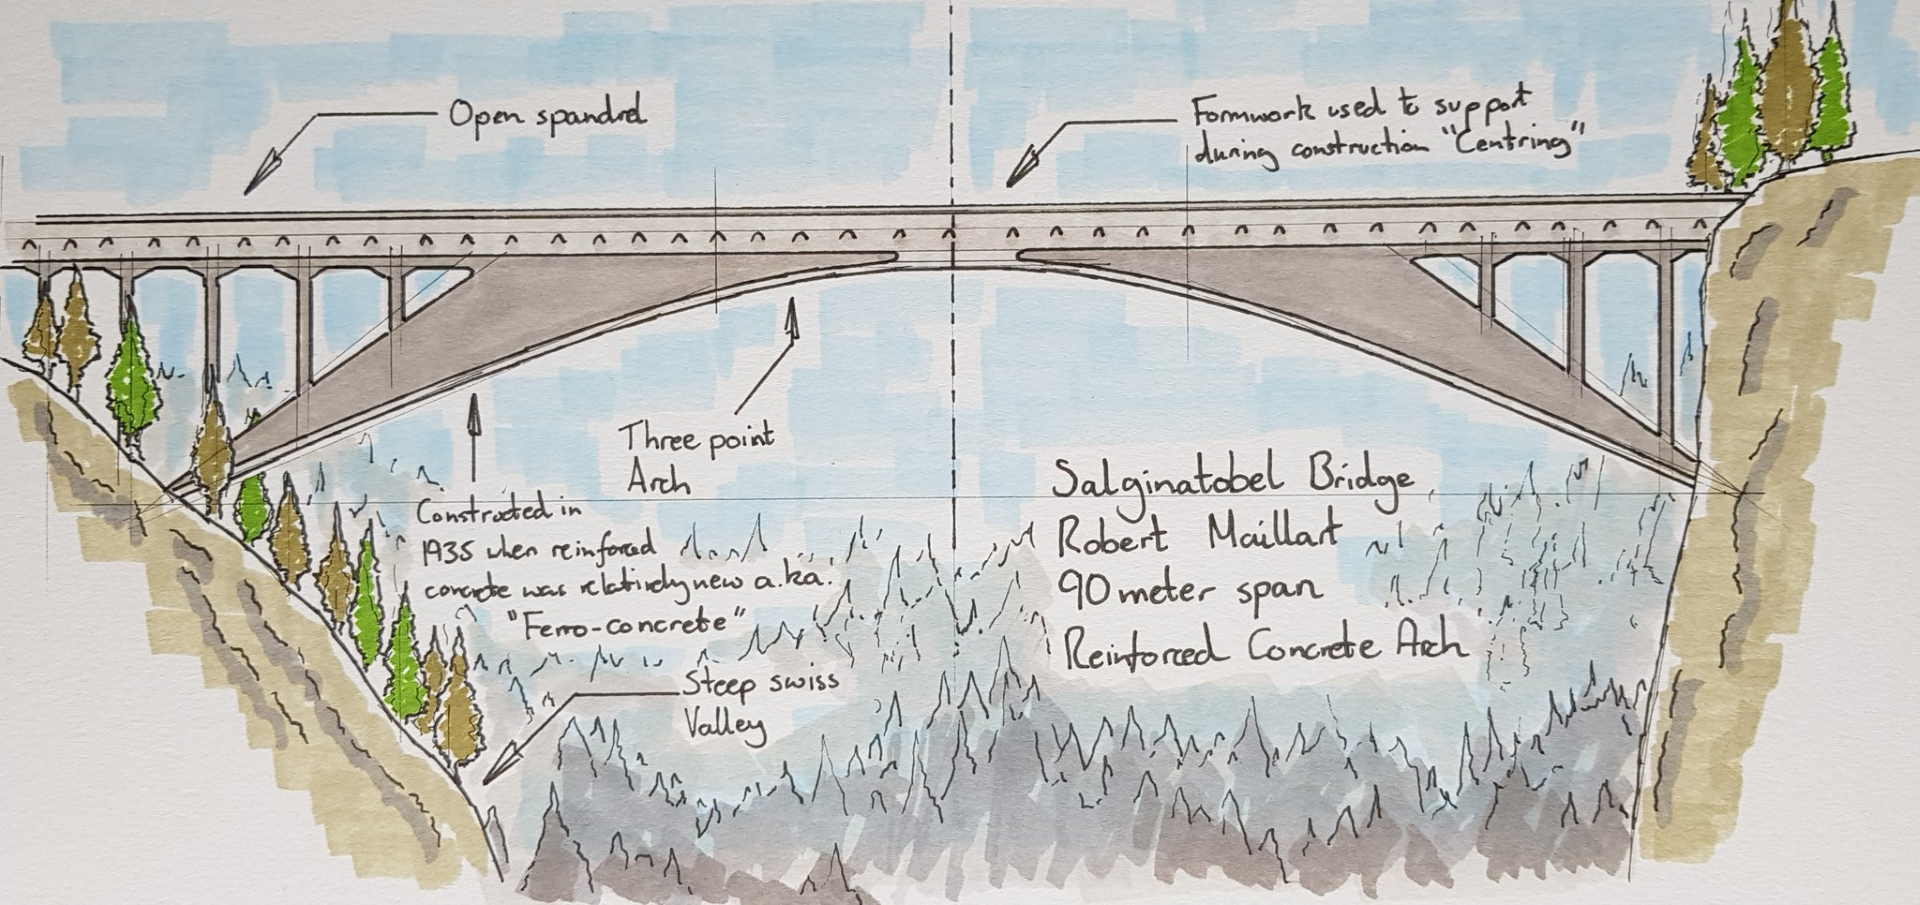 Open spandrel
Formwork used to support
during construction "Centring"
Three point
Arch
Constructed in
1935 when reinforced
concrete was relatively new a.k.a.
"Ferro-concrete"
Steep swiss
Valley
Salginatobel Bridge
Robert Maillart
90 meter span
Reinforced Concrete Arch